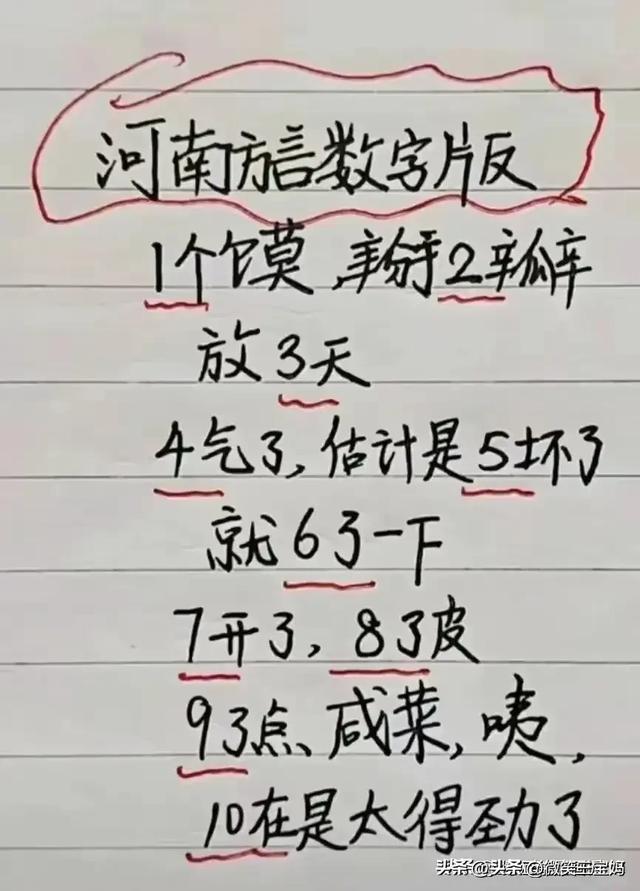 河南方言数字版
1个馍,掰2瓣
放3天
4气了,估计是5坏了
就6了一下
7开了,83皮
93点、咸菜,咦,
10在是太得劲了
头条@头条@微笑王宝妈